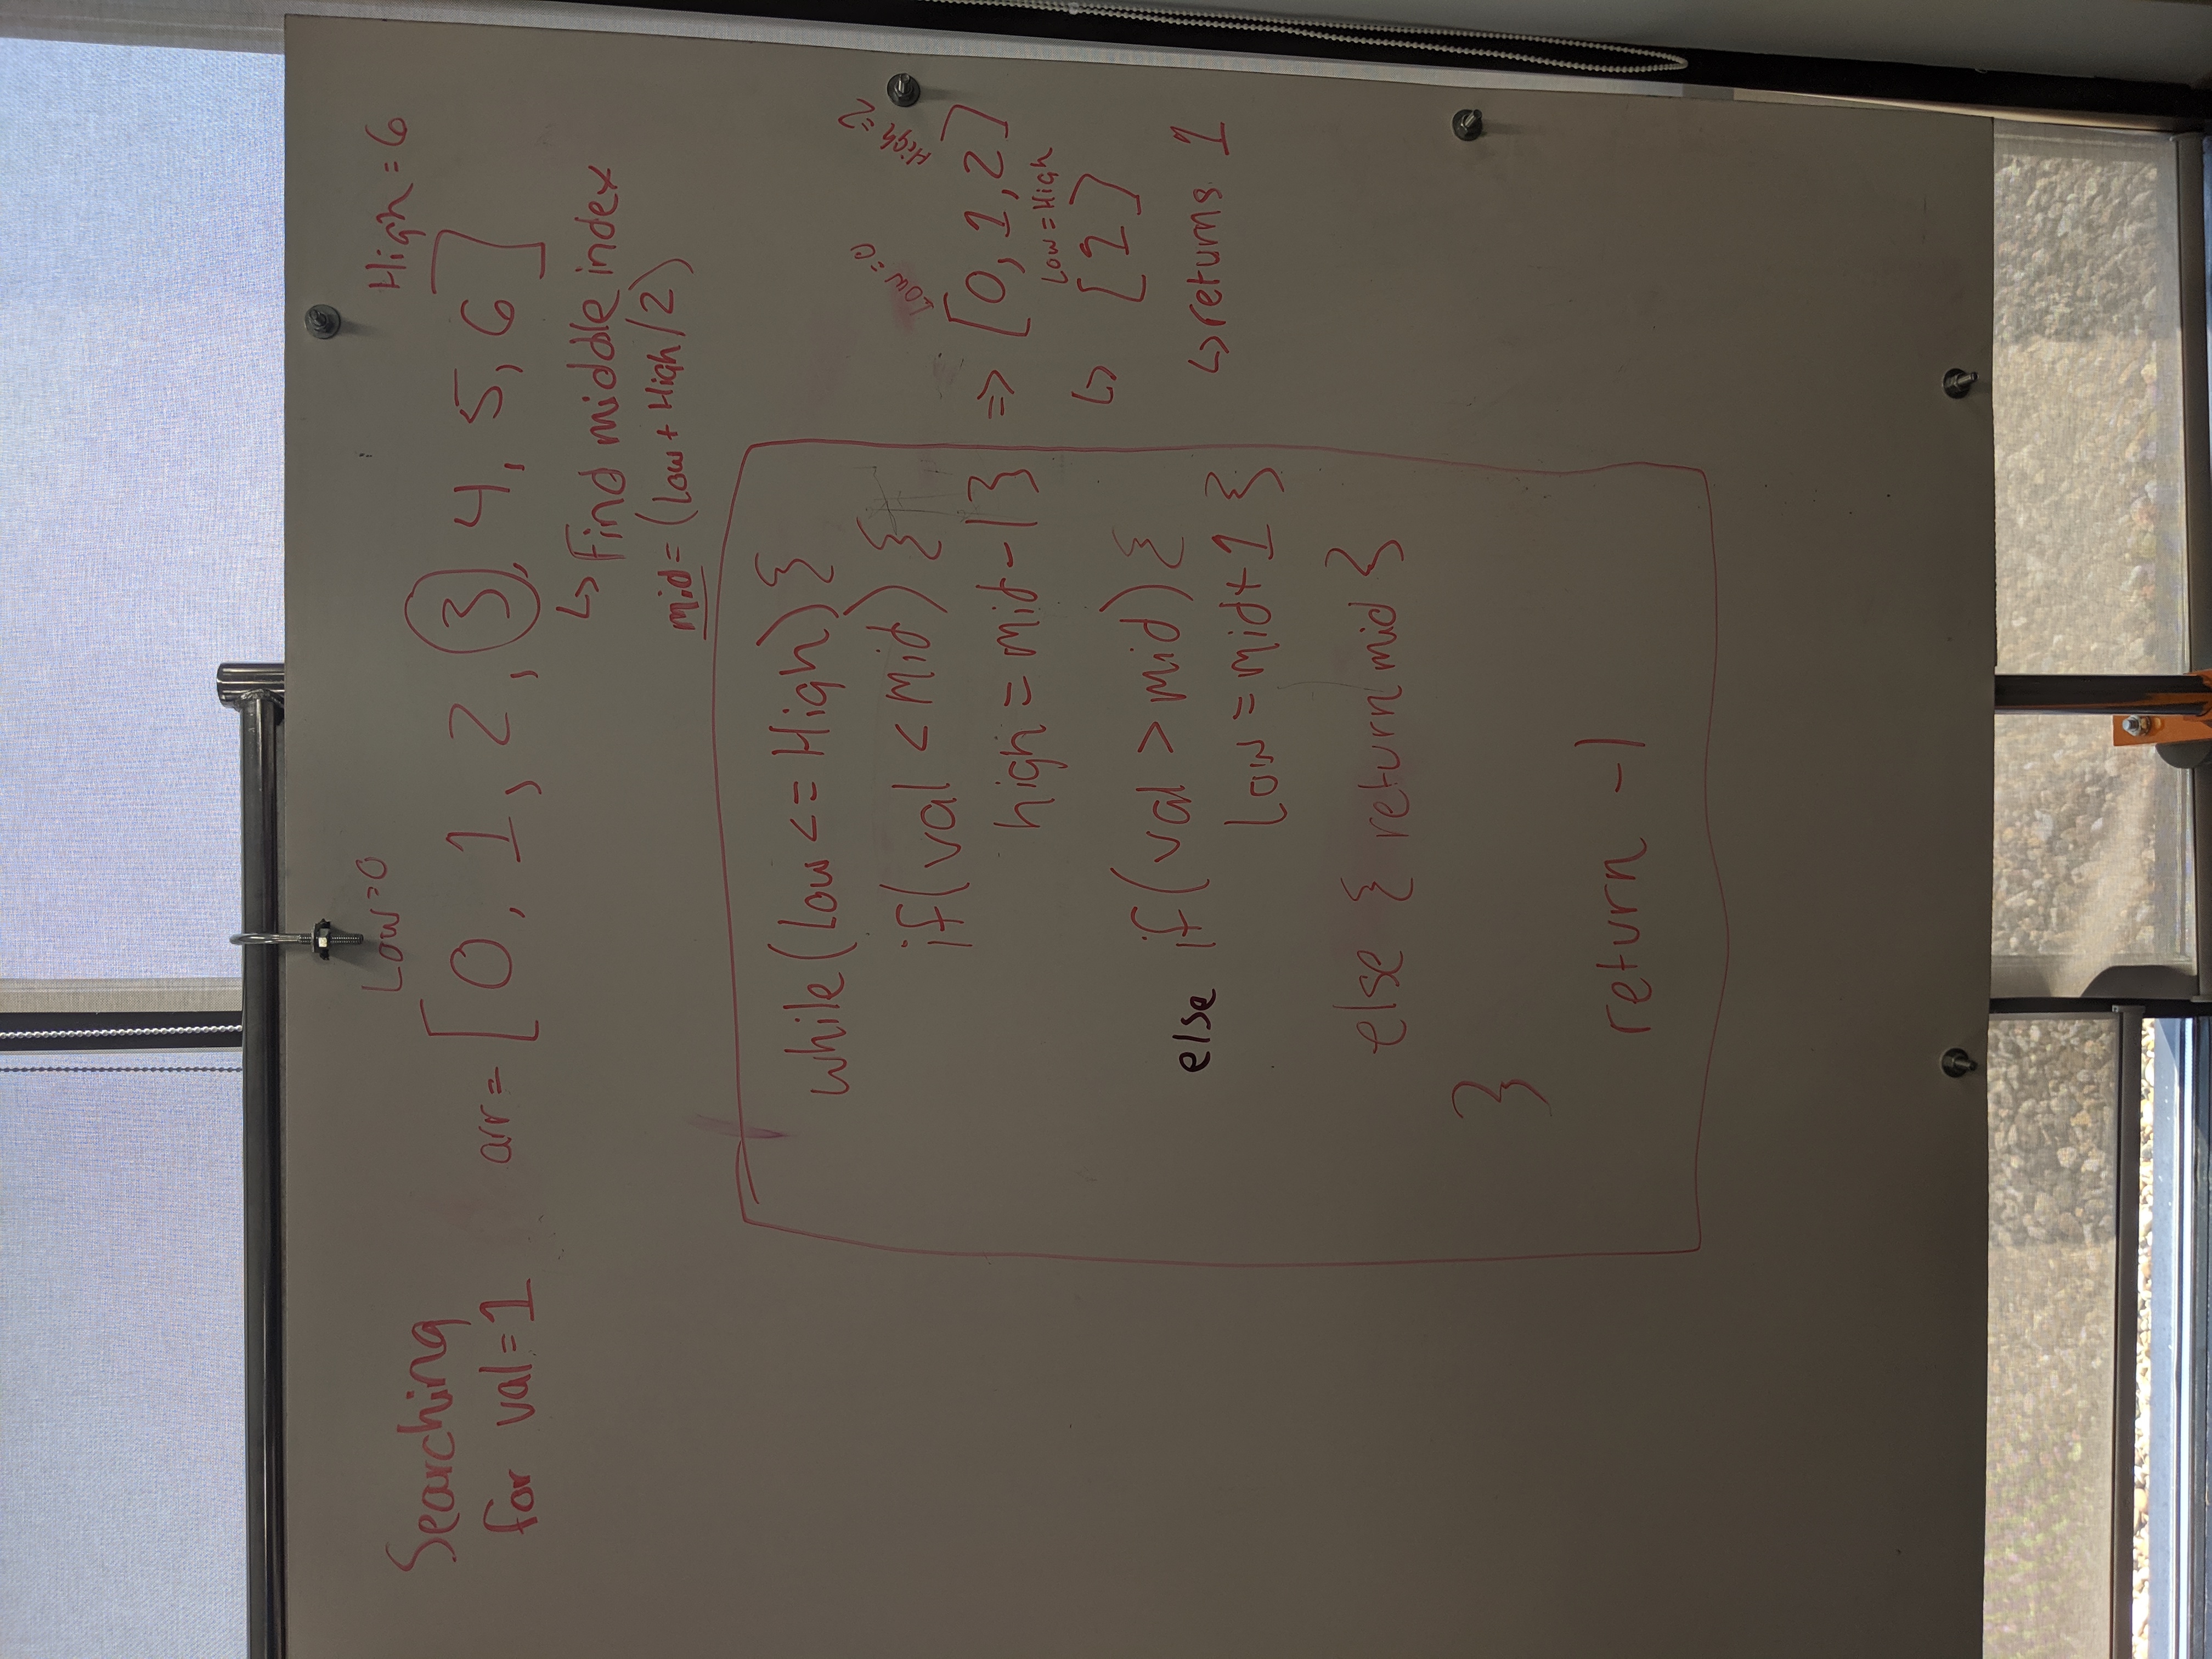 Low=0
High = 6
Searching
for val=1
arr = [0, 1, 2, 3, 4, 5, 6]
↳ Find middle index
mid = (Low + High/2)
while(Low <= High) {
if(val < mid) {
high = mid-1 }
else if(val > mid) {
Low = mid+1 }
else { return mid }
}
return -1
Low=0
High=2
=> [0, 1, 2]
Low = High
↳ [1]
↳ returns 1